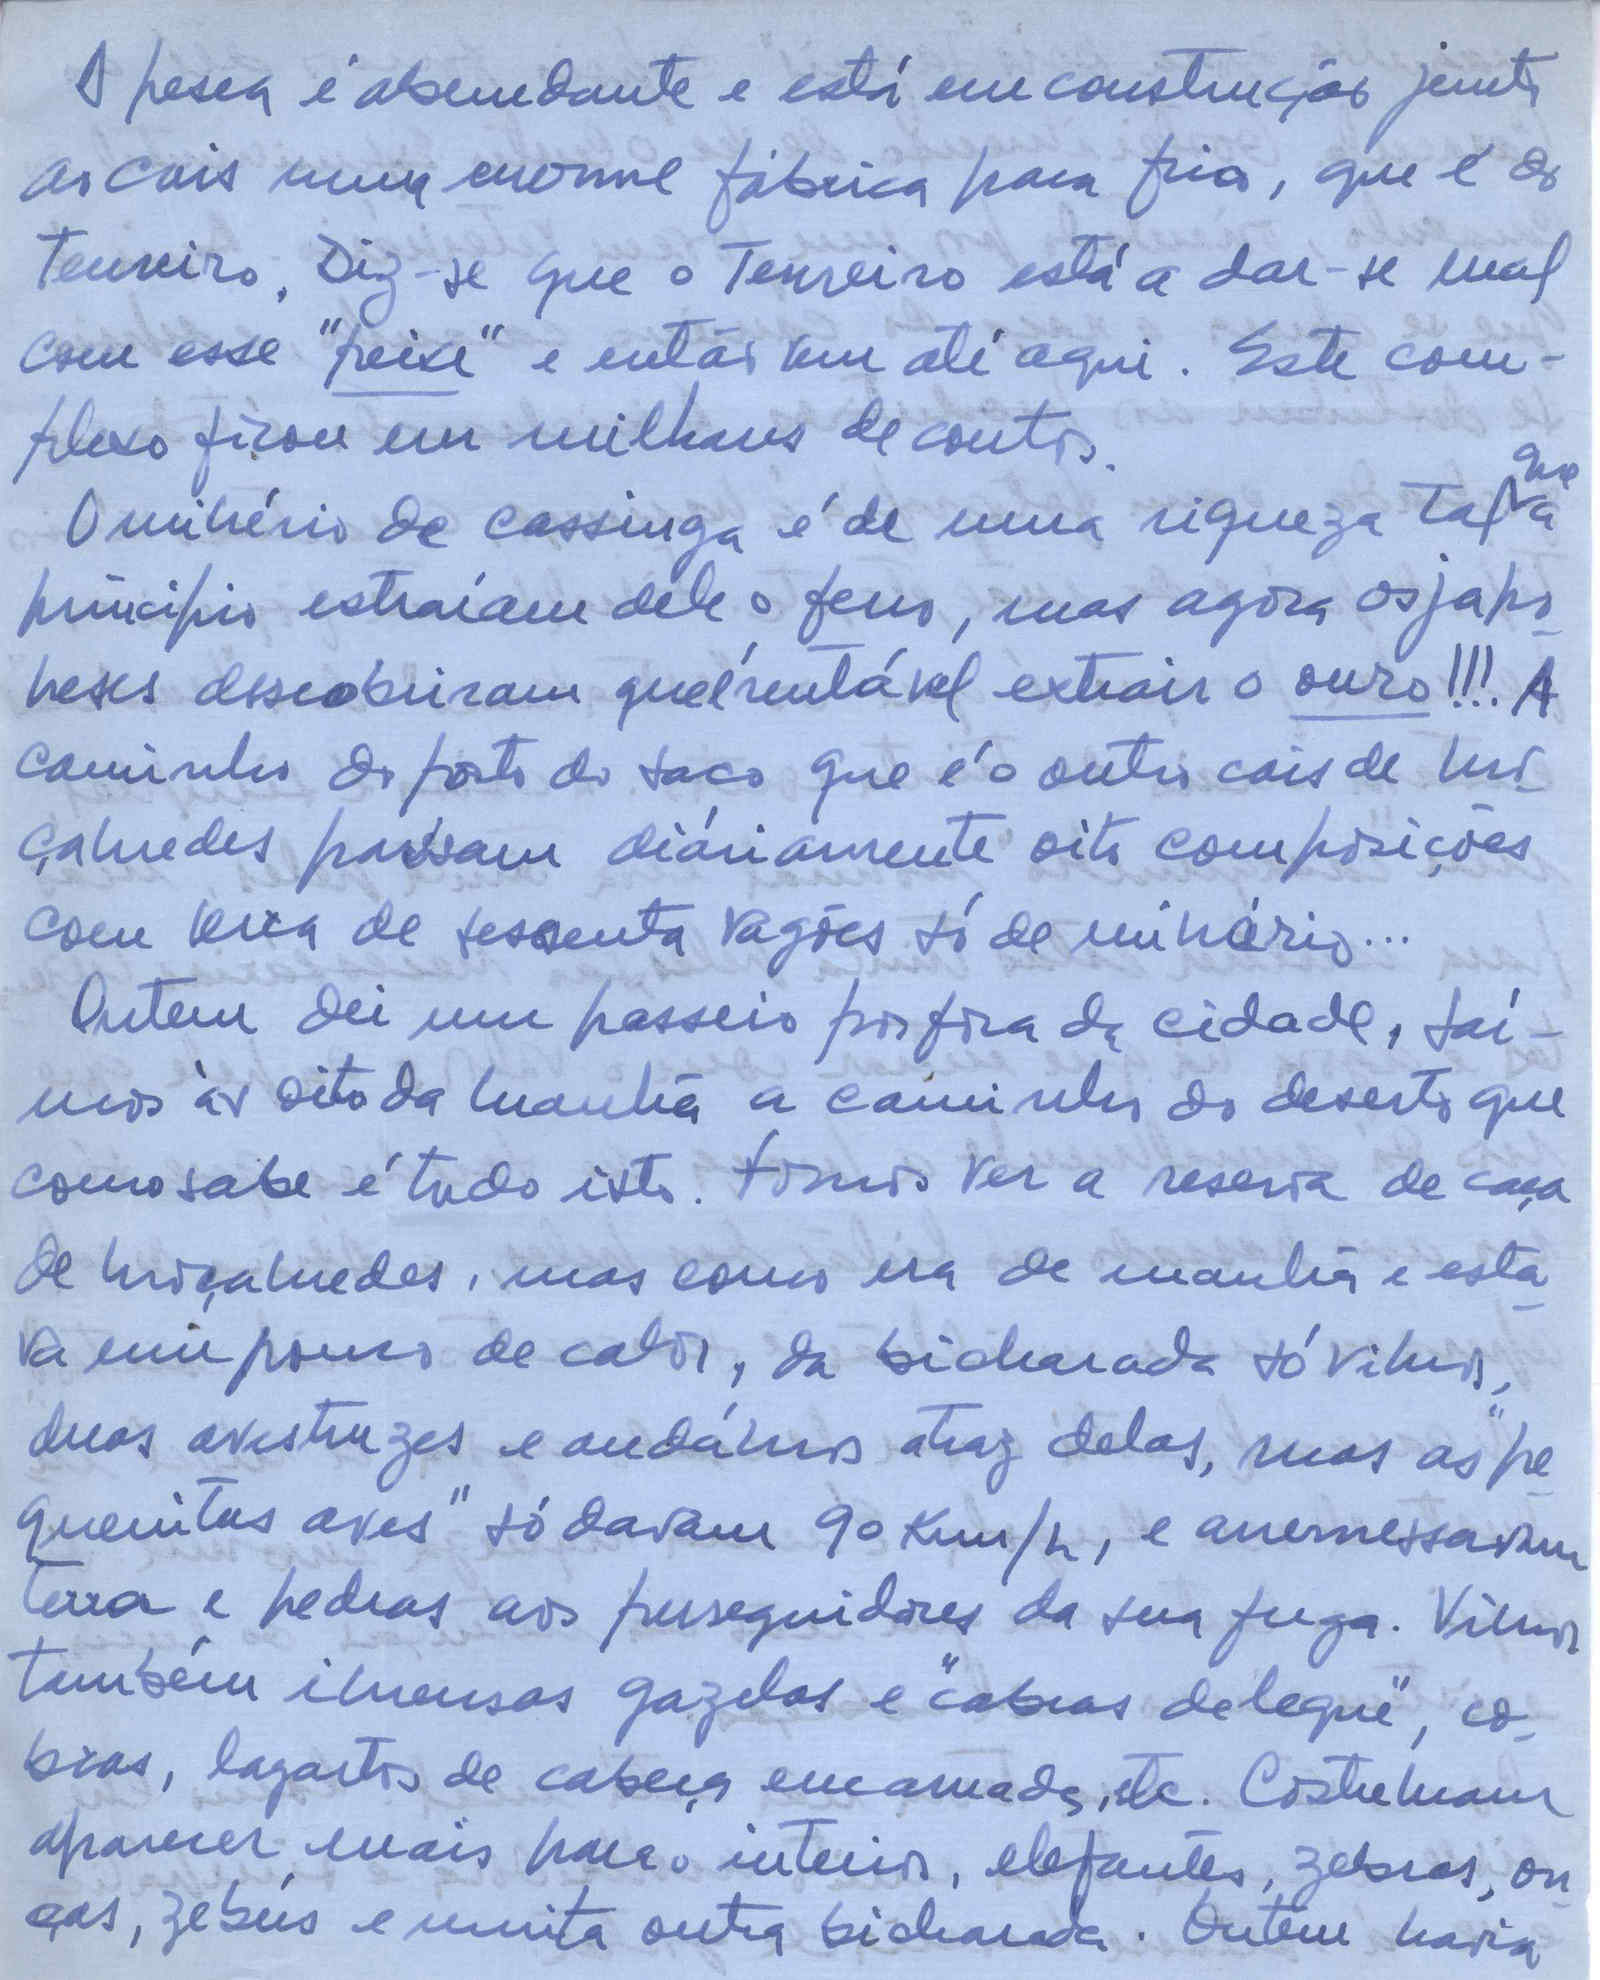 A pesca é abundante e está em construção junto
ao cais uma enorme fábrica para frio, que é do
Tenreiro. Diz-se que o Tenreiro está a dar-se mal
com esse "peixe" e então vem até aqui. Este com-
plexo ficou em milhares de contos.
O minério de Cassinga é de uma riqueza tal que a
princípio estraíam dele o ferro, mas agora os japo-
neses descobriram que é rentável extrair o ouro!!!. A
caminho do porto do saco que é o outro cais de Mo-
çamedes passam diáriamente oito composições
com cerca de sessenta vagões só de minério...
Ontem dei um passeio por fora da cidade, saí-
mos às oito da manhã a caminho do deserto que
como sabe é tudo isto. Fomos ver a reserva de caça
de Moçamedes, mas como era de manhã e esta-
va um pouco de calor, da bicharada só vimos,
duas avestruzes e andámos atraz delas, mas as "pe-
quenitas aves" só davam 90 Km/h, e arremessavam
terra e pedras aos perseguidores da sua fuga. Vimos
também imensas gazelas e "cabras de leque", co-
bras, lagartos de cabeça encarnada, etc. Costumam
aparecer mais para o interior, elefantes, zebras, on-
ças, zebús e muita outra bicharada. Ontem havia